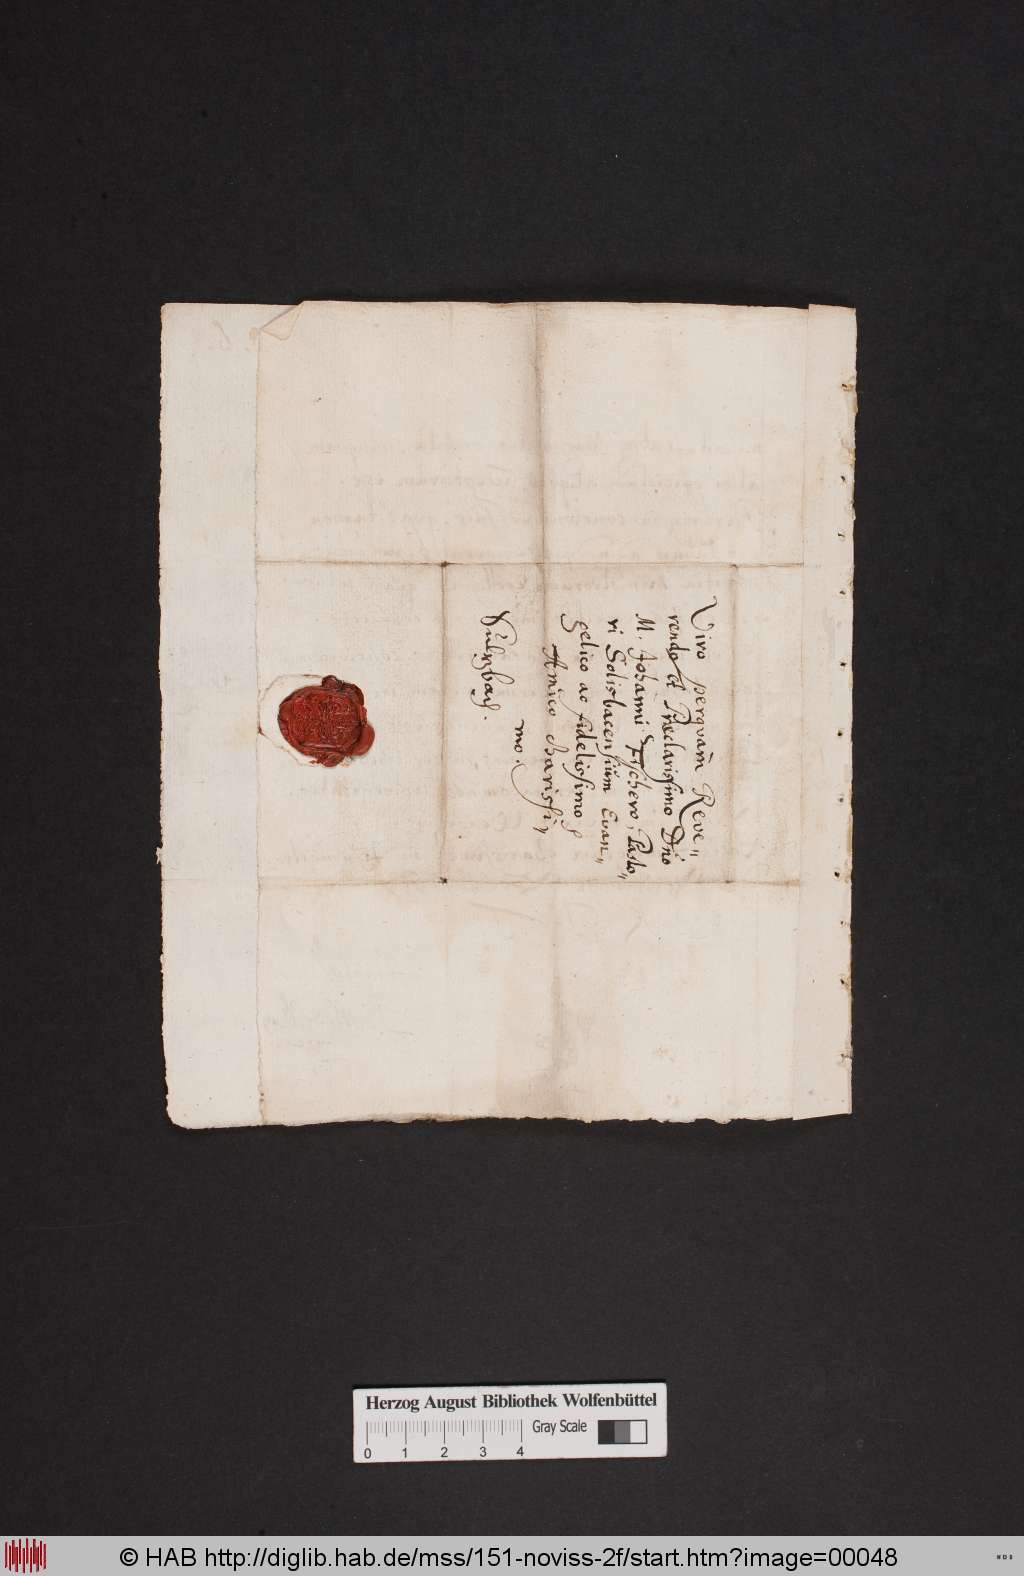 Viro perquam̃ Reve„
rendo et Preclarissimo Dño
M. Johanni Fischero, Pasto„
ri Solisbacensiũm Evan„
gelico ac fidelissimo
Amico Charissi„
mo.
Sulzbach.
Herzog August Bibliothek Wolfenbüttel
0 1 2 3 4
Gray Scale
© HAB http://diglib.hab.de/mss/151-noviss-2f/start.htm?image=00048